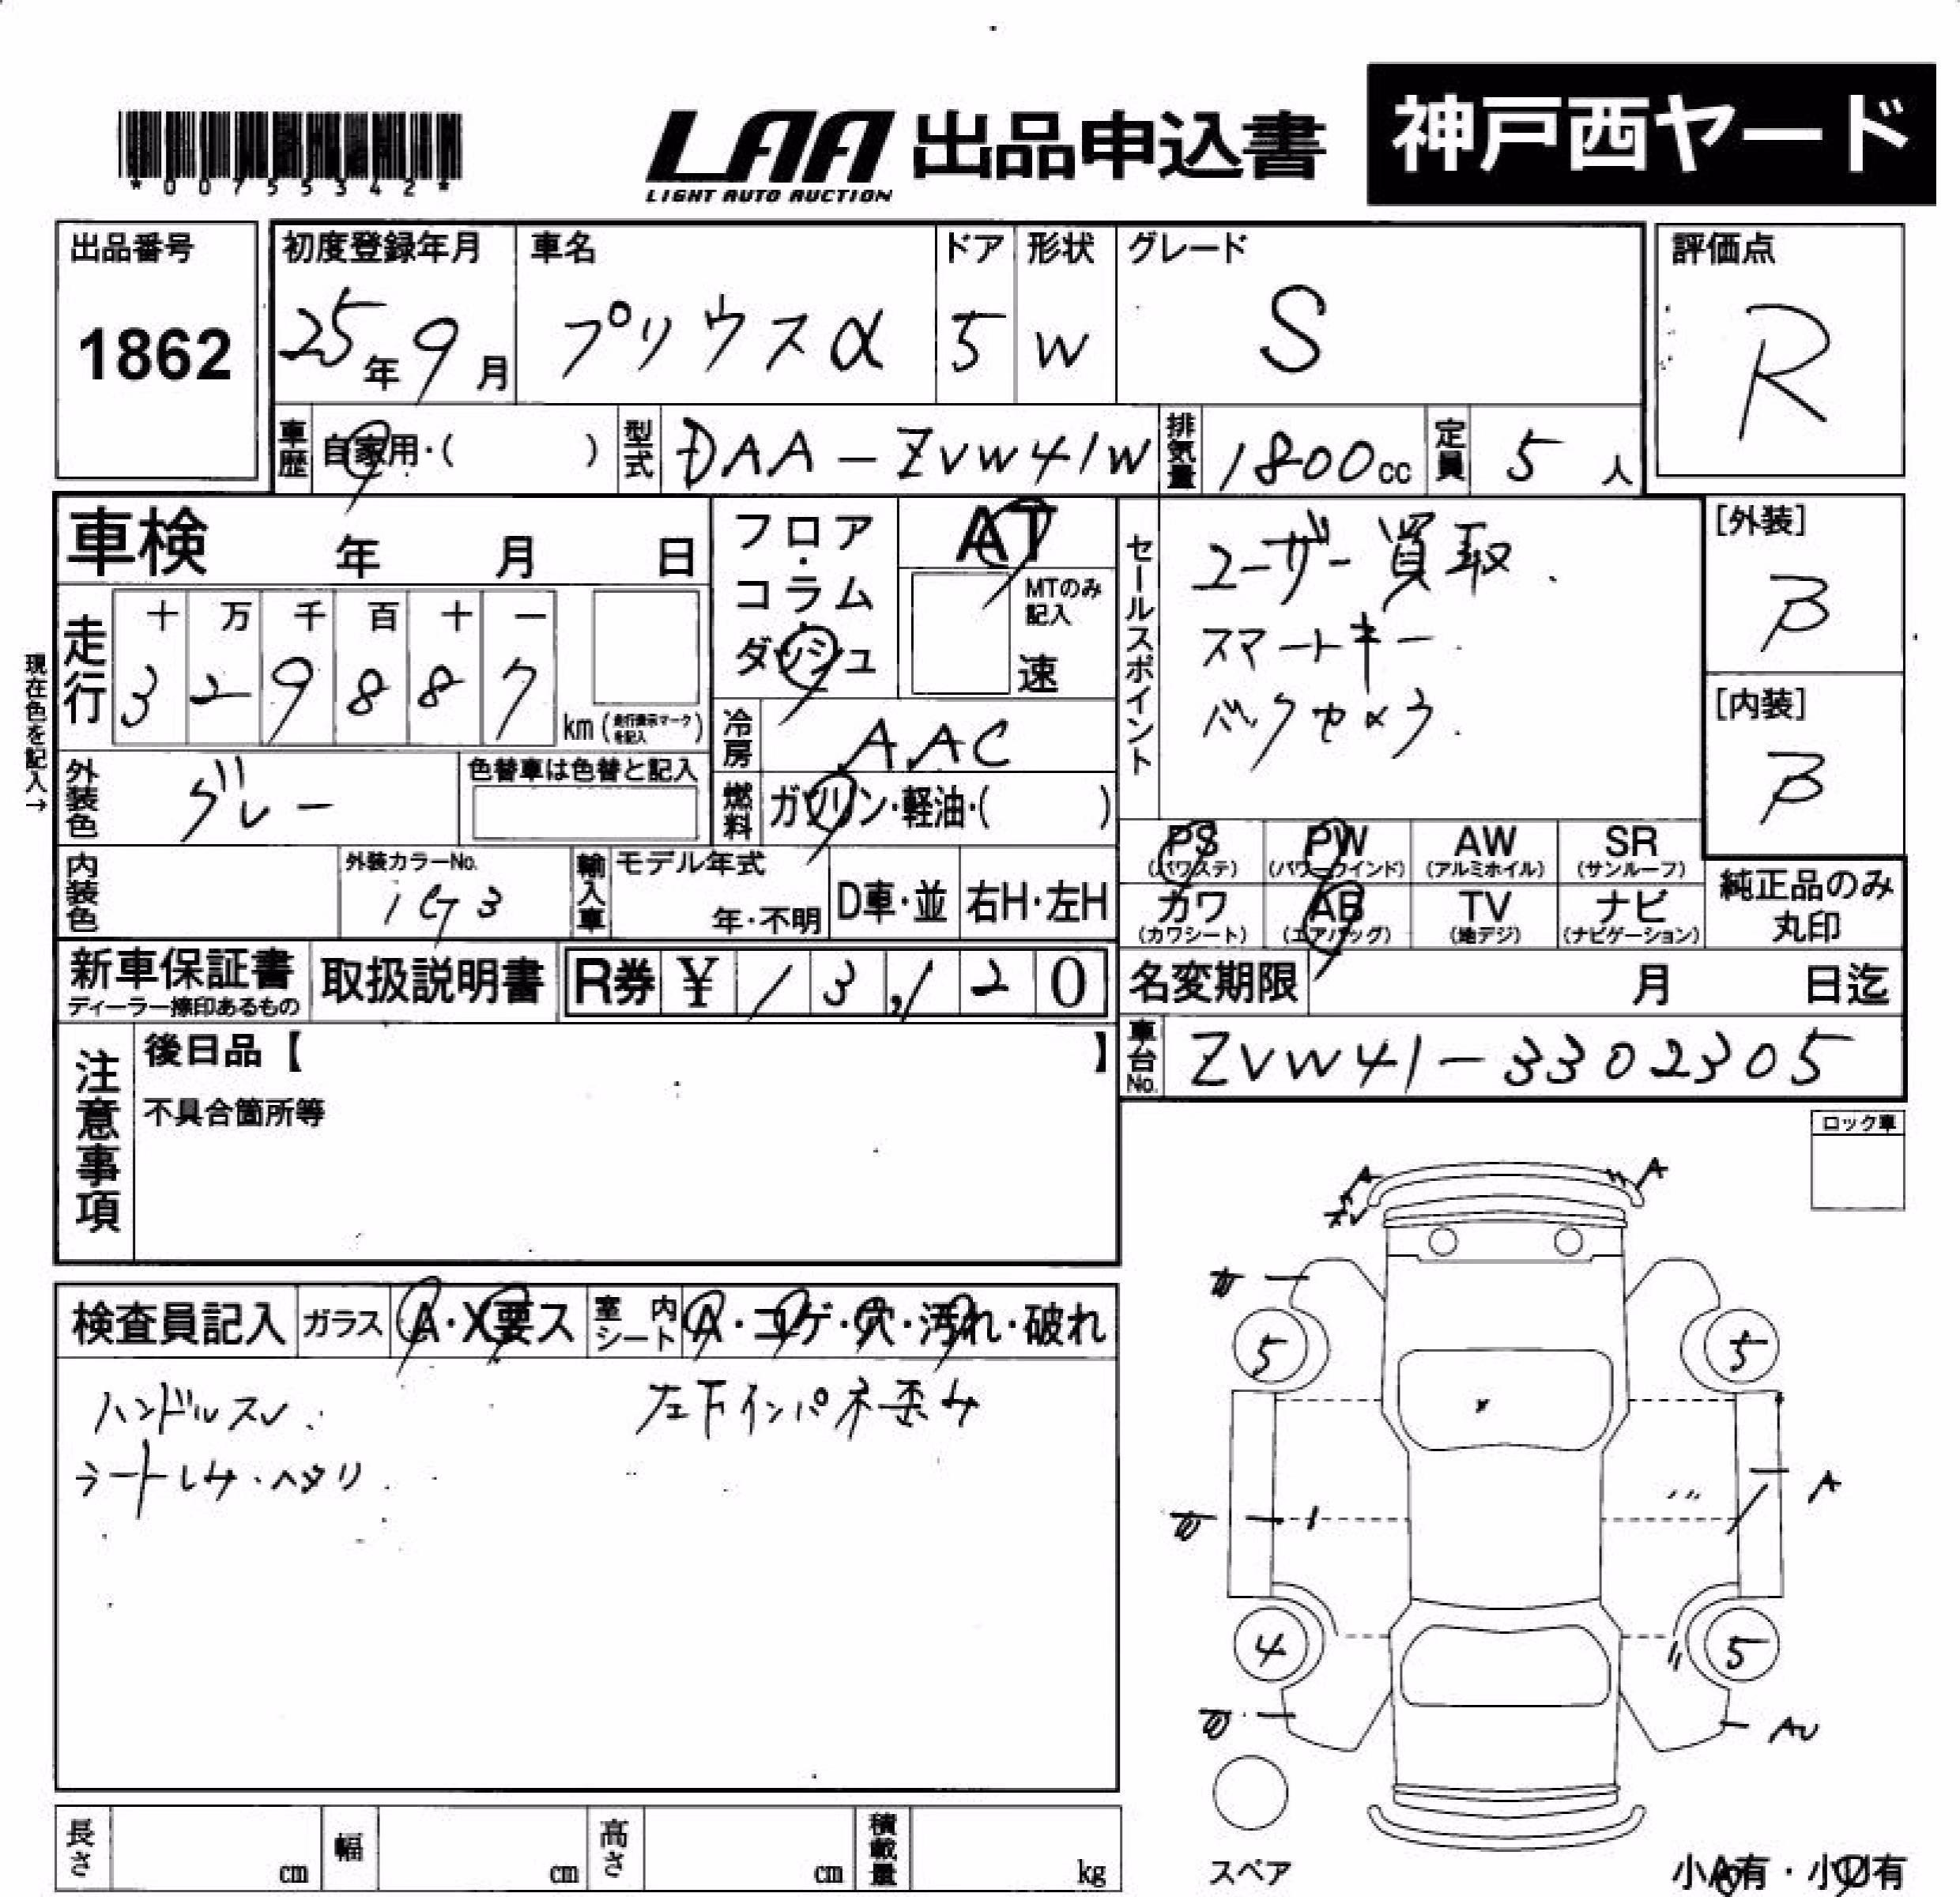 *00755342*
LAA 出品申込書
LIGHT AUTO AUCTION
神戸西ヤード
出品番号
1862
初度登録年月
25年9月
車名
プリウスα
ドア
5
形状
W
グレード
S
評価点
R
車歴
自家用・( )
型式
DAA-ZVW41W
排気量
1800cc
定員
5人
車検 年 月 日
フロア・コラム・ダッシュ
AT
MTのみ記入
速
セールスポイント
ユーザー買取.
スマートキー.
バックカメラ.
[外装]
B
[内装]
B
現在色を記入→
走行
十 万 千 百 十 一
3 2 9 8 8 7
km(走行表示マークを記入)
冷房
AAC
燃料
ガソリン・軽油・( )
外装色
グレー
色替車は色替と記入
内装色
外装カラーNo.
1G3
輸入車
モデル年式
年・不明
D車・並
右H・左H
PS
(パワステ)
PW
(パワーウインド)
AW
(アルミホイル)
SR
(サンルーフ)
カワ
(カワシート)
AB
(エアバッグ)
TV
(地デジ)
ナビ
(ナビゲーション)
純正品のみ
丸印
新車保証書
ディーラー捺印あるもの
取扱説明書
R券 ¥ 13,120
名変期限 月 日迄
車台No.
ZVW41-3302305
注意事項
後日品【 】
不具合箇所等
ロック車
検査員記入
ガラス
A・X要ス
室内シート
A・コゲ・穴・汚れ・破れ
ハンドルスレ.
シートレサ・ヘタリ.
左下インパネ歪み
A
A
5
5
A
4
5
AU
スペア
長さ cm
幅 cm
高さ cm
積載量 kg
小A有・小U有